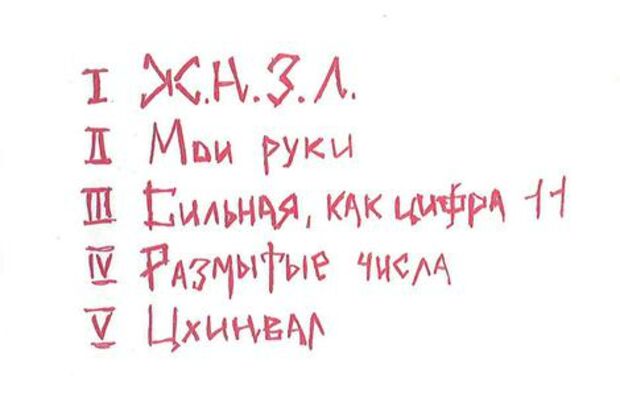 I Ж.Н.З.Л.
II Мои руки
III Сильная, как цифра 11
IV Размытые числа
V Цхинвал